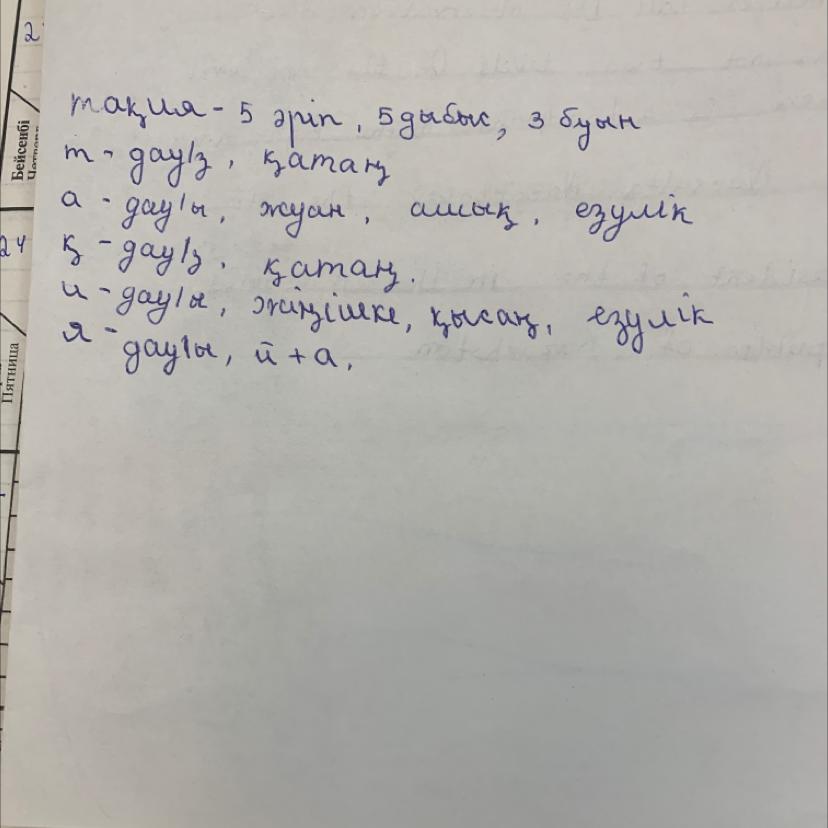 2
Бейсенбі
24
Пятница
тақия - 5 әріп, 5 дыбыс, 3 буын
т - дау/з, қатаң
а - дау/ы, жуан, ашық, езулік
қ - дау/з, қатаң.
и - дау/ы, жіңішке, қысаң, езулік
я - дау/ы, й + а.